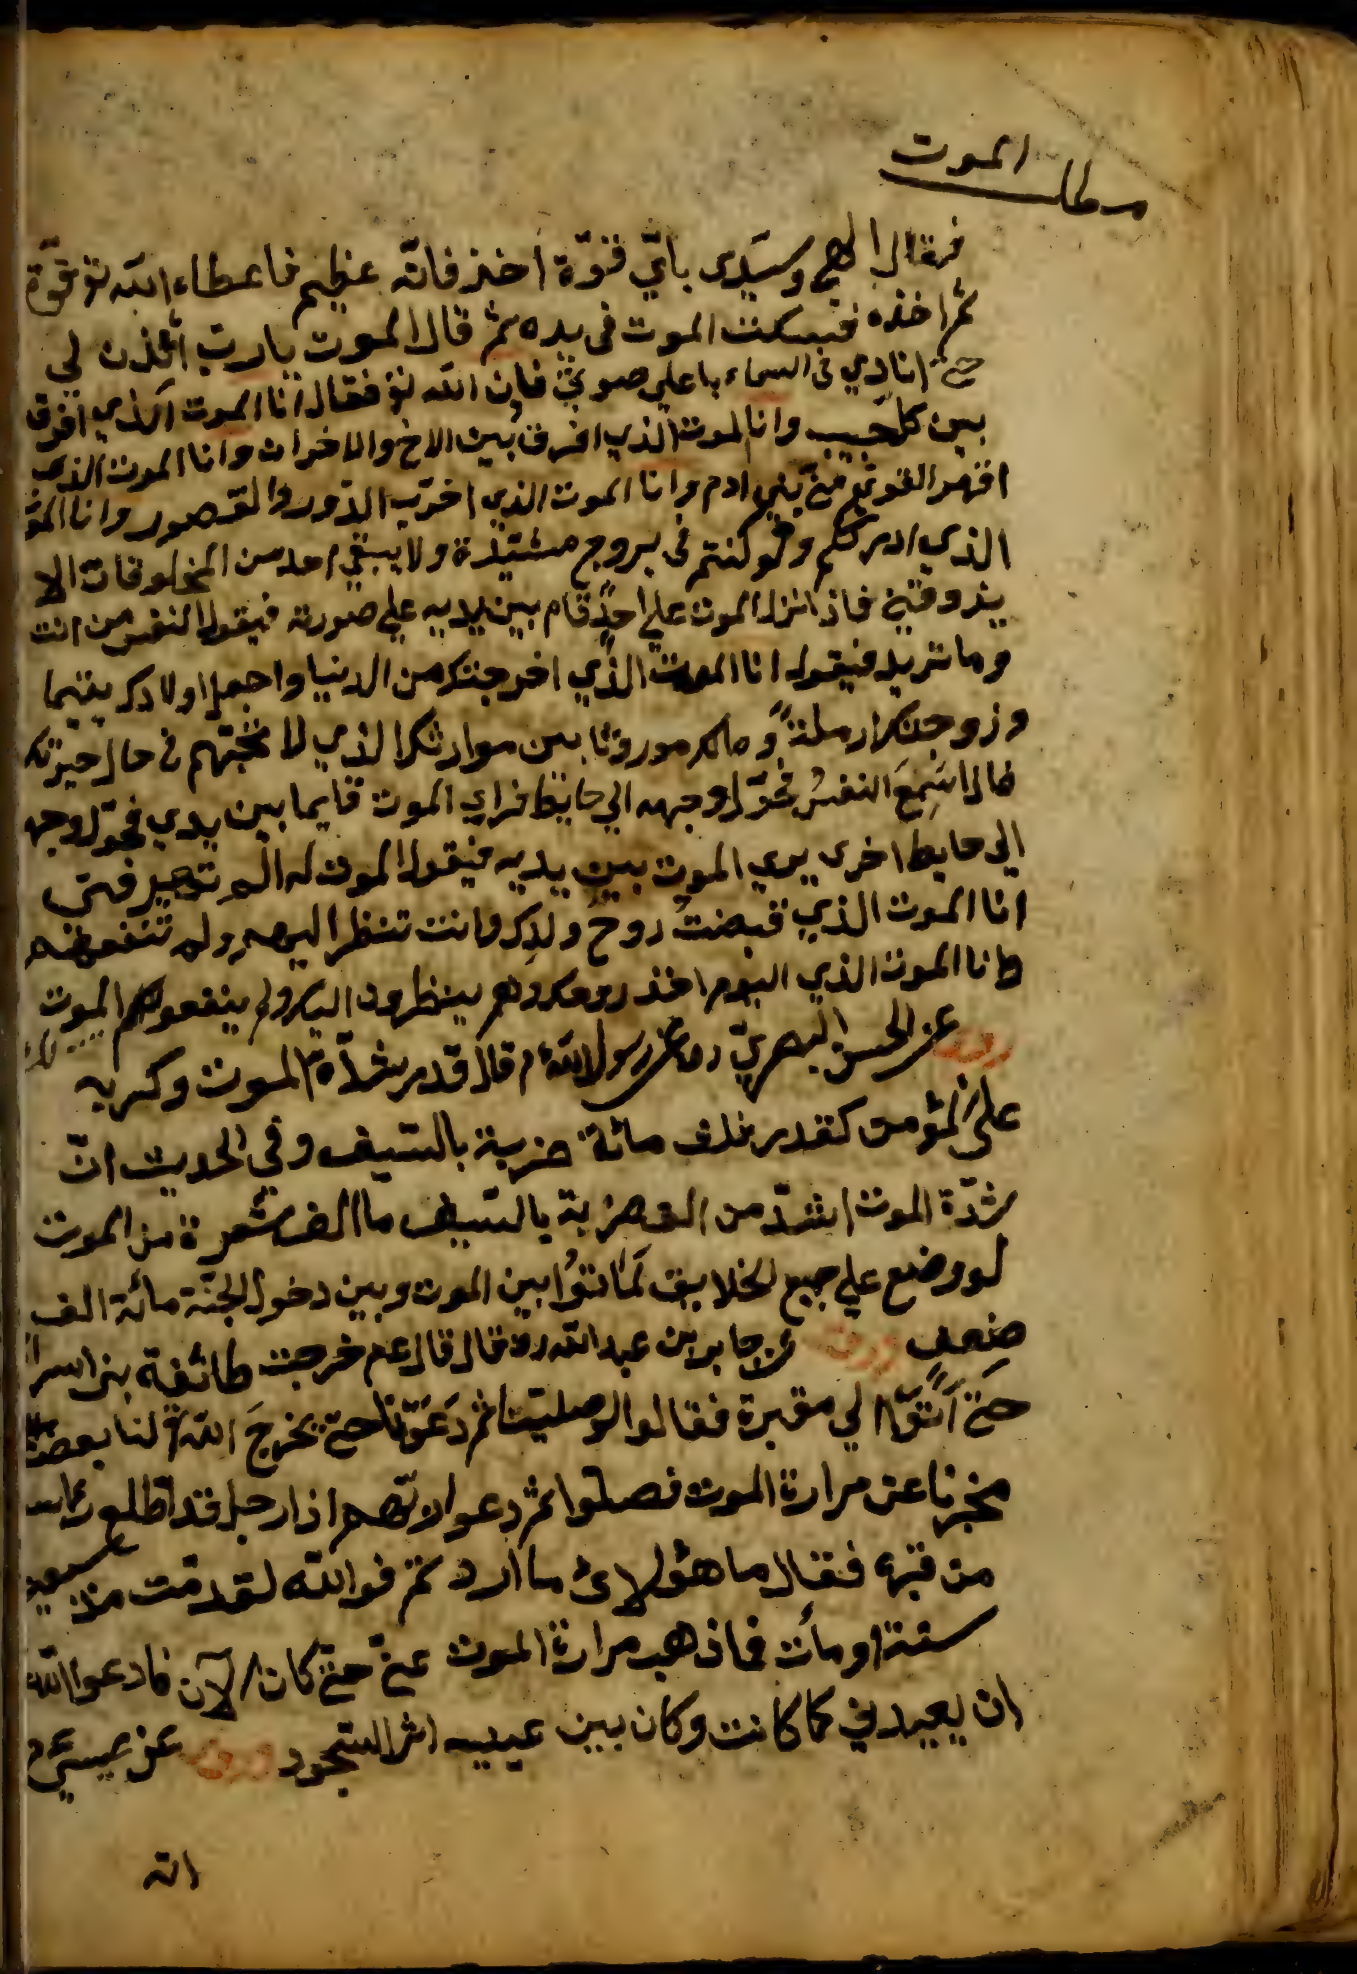 مطلب الموت
فقال الهي وسيدي باي قوة اخذ فانه عظيم فاعطاء الله تع قوة
ثم اخذه فسكنت الموت في يده ثم قال الموت يا رب ائذن لي
حتى انادي في السماء باعلى صوتي فاذن الله تع فقال انا الموت الذي افرق
بين كل حبيب وانا الموت الذي افرق بين الاخ والاخوات وانا الموت الذي
اقهر القوي من بني ادم وانا الموت الذي اخرّب الدّور والقصور وانا الموت
الذي ادرككم ولو كنتم في بروج مشيّدة ولا يبقي احد من المخلوقات الا
يذوقني فاذا نزل الموت علي احدٍ قام بين يديه علي صورته فيقول النفس من انت
وما تريد فيقول انا الموت الذي اخرجتك من الدنيا واجعل اولادك يتيما
وزوجتك ارملةً ومالك موروثا بين موارثك الذي لا تحبّهم في حال حيوتك
فالذا سَمِعَ النفسُ تحوّل وجهه الي حايط فراي الموت قايما بين يدي فحوّل وجهه
الي حايط اخري يري الموت بين يديه فيقول الموت له الم تعرفني
انا الموت الذي قبضتُ روح ولدك وانت تنظر اليهم ولم تنفعهم
وانا الموت الذي اليوم اخذ روحك وهم ينظرون اليك ولم ينفعوكم الموت
روي عن الحسن البصريّ رح عن رسول الله م قال قدر شدّة الموت وكربه
علي المؤمن كقدر ثلث مائة ضربة بالسّيف وفي الحديث انّ
شدّة الموت اشدّ من الف ضربة بالسّيف ما الف شعرة من الموت
لو وضع علي جميع الخلايق لَمَاتُوا بين الموت وبين دخول الجنّة مائة الف
ضعف روي عن جابر بن عبد الله رض قال قال عم خرجت طائفة بني اسرا
حتّى اَتَوْا الي مقبرة فقالوا لو صلّيتنا ثم دَعَوْنَا حتى يخرجَ الله لنا بعض
مخبرنا عن مرارة الموت فصلّوا ثم دعوا ربّهم اذا رجل قد اطلع راسه
من قبره فقال ما هؤلاء ما اردتم فوالله لقد متّ منذ سبعين
سنة او مأت فما ذهب مرارة الموت عنّي حتّى كان الآن فادعوا الله
ان يعيدني كما كانت وكان بين عينيه اثر السّجود روي عن عيسى م
انه